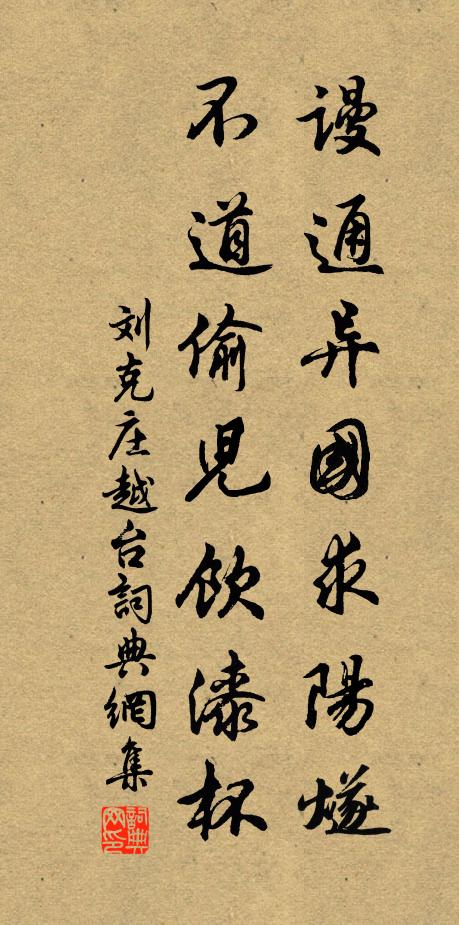 謾通异國求陽燧
不道偷兒飲漆杯
刘克庄越台詞典網集
詞典网印